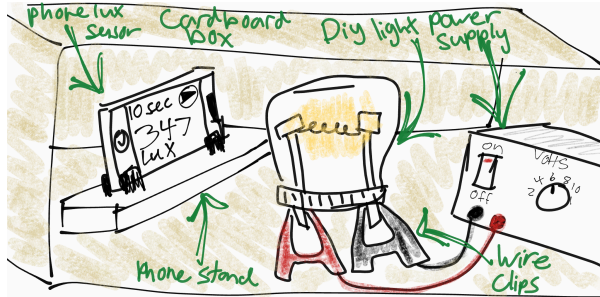 phone lux
sensor
Cardboard
box
Diy light
power
supply
10 sec
347
lux
on
off
Volts
2 4 6 8 10
Phone stand
Wire
clips